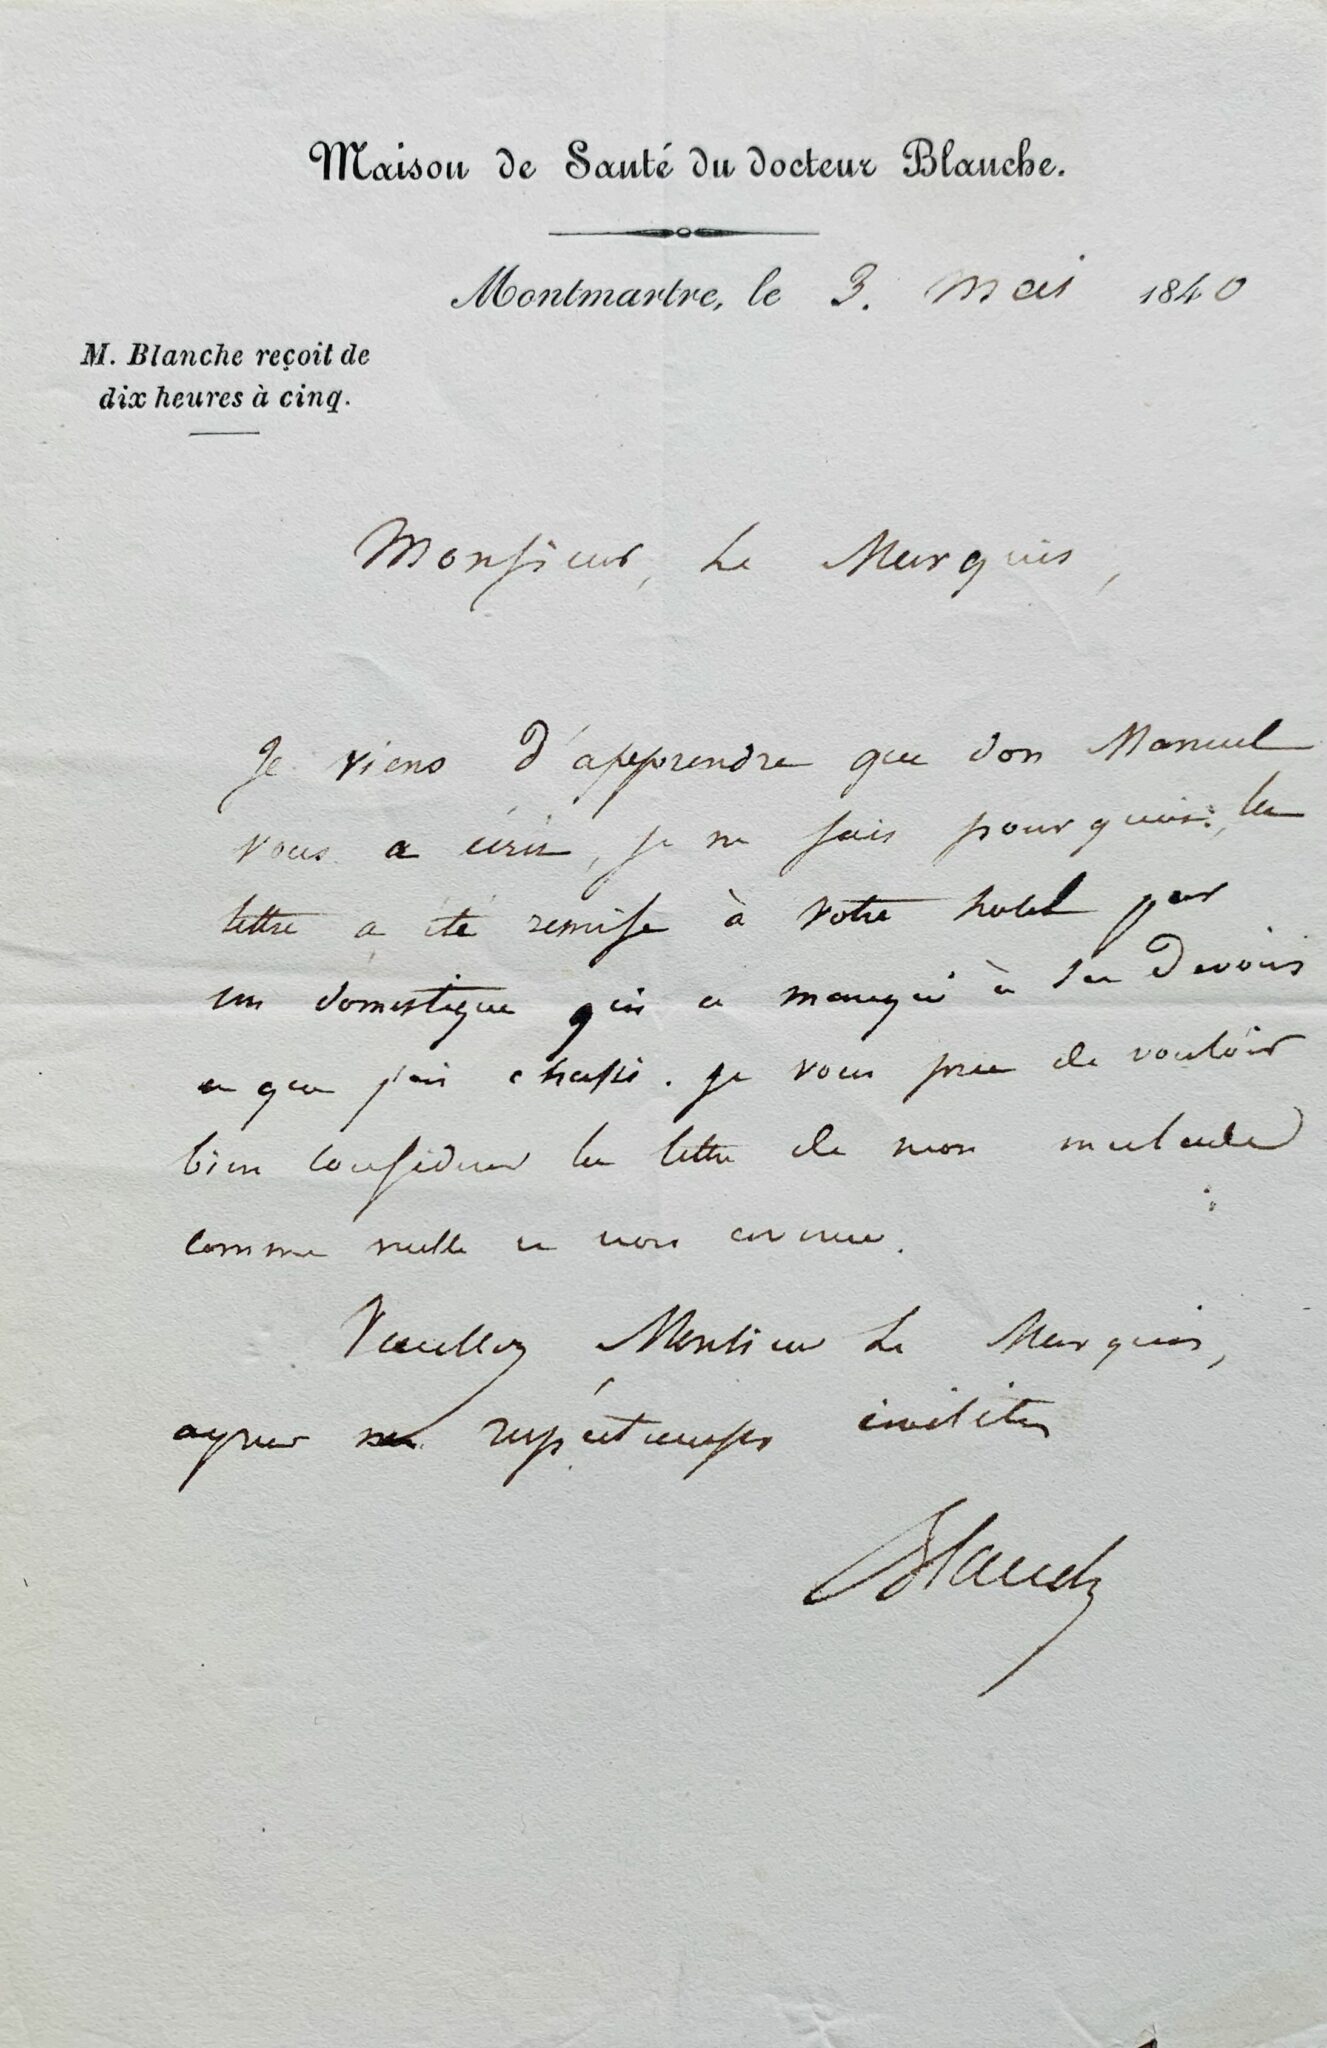 Maison de Santé du docteur Blanche.
Montmartre, le 3. mai 1840
M. Blanche reçoit de
dix heures à cinq.
Monsieur, Le Marquis,
Je viens d'apprendre que don Manuel
vous a écrit, je ne sais pourquoi; la
lettre a été remise à votre hotel par
un domestique qui a manqué à ses devoirs
et que j'ai chassé. je vous prie de vouloir
bien considerer la lettre de mon malade
comme nulle et non avenue.
Veuillez Monsieur Le Marquis,
agreer mes respectueuses civilités
Blanche